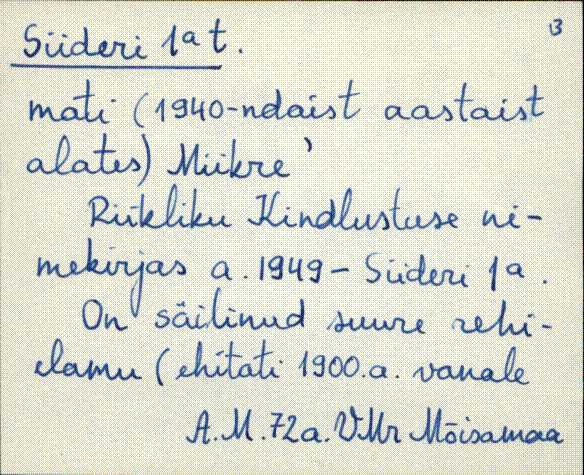 13
Siideri 1a t.
mati (1940-ndaist aastaist
alates) Miikre'
Riikliku Kindlustuse ni-
mekirjas a. 1949 – Siideri 1a.
On säilinud suure rehi-
elamu (ehitati 1900.a. vanale
A.M. 72a. VMr Mõisamaa